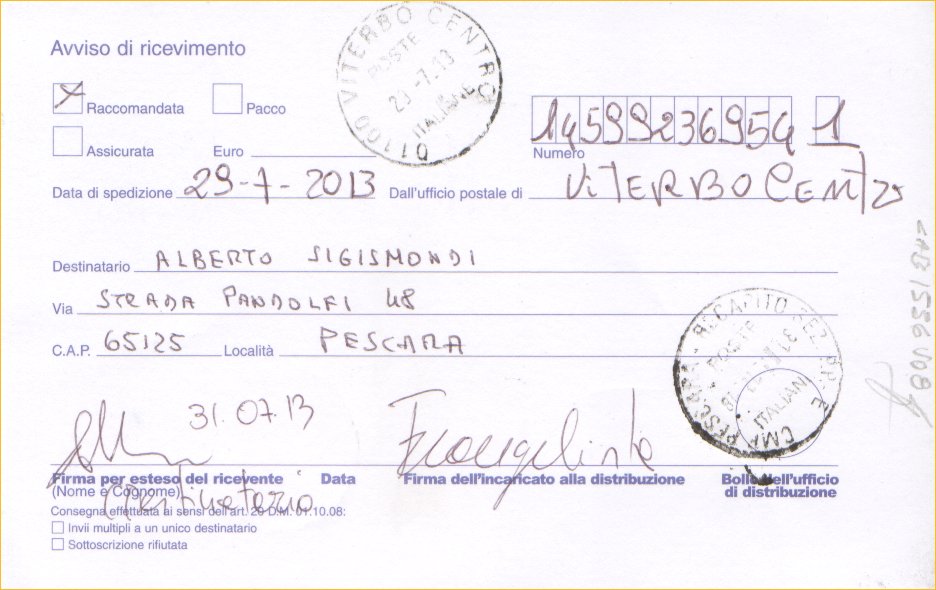 Avviso di ricevimento
01100 VITERBO CENTRO
POSTE
ITALIANE
x Raccomandata Pacco
Assicurata Euro
14599236954 1
Numero
Data di spedizione 29-7-2013 Dall'ufficio postale di VITERBO CENTRO
Destinatario ALBERTO SIGISMONDI
Via STRADA PANDOLFI 48
C.A.P. 65125 Località PESCARA
POSTE
ITALIANE
31.07.13
Firma per esteso del ricevente Data Firma dell'incaricato alla distribuzione Bollo dell'ufficio
(Nome e Cognome) di distribuzione
Consegna effettuata ai sensi dell'art. 20 D.M. 01.10.08:
Invii multipli a un unico destinatario
Sottoscrizione rifiutata